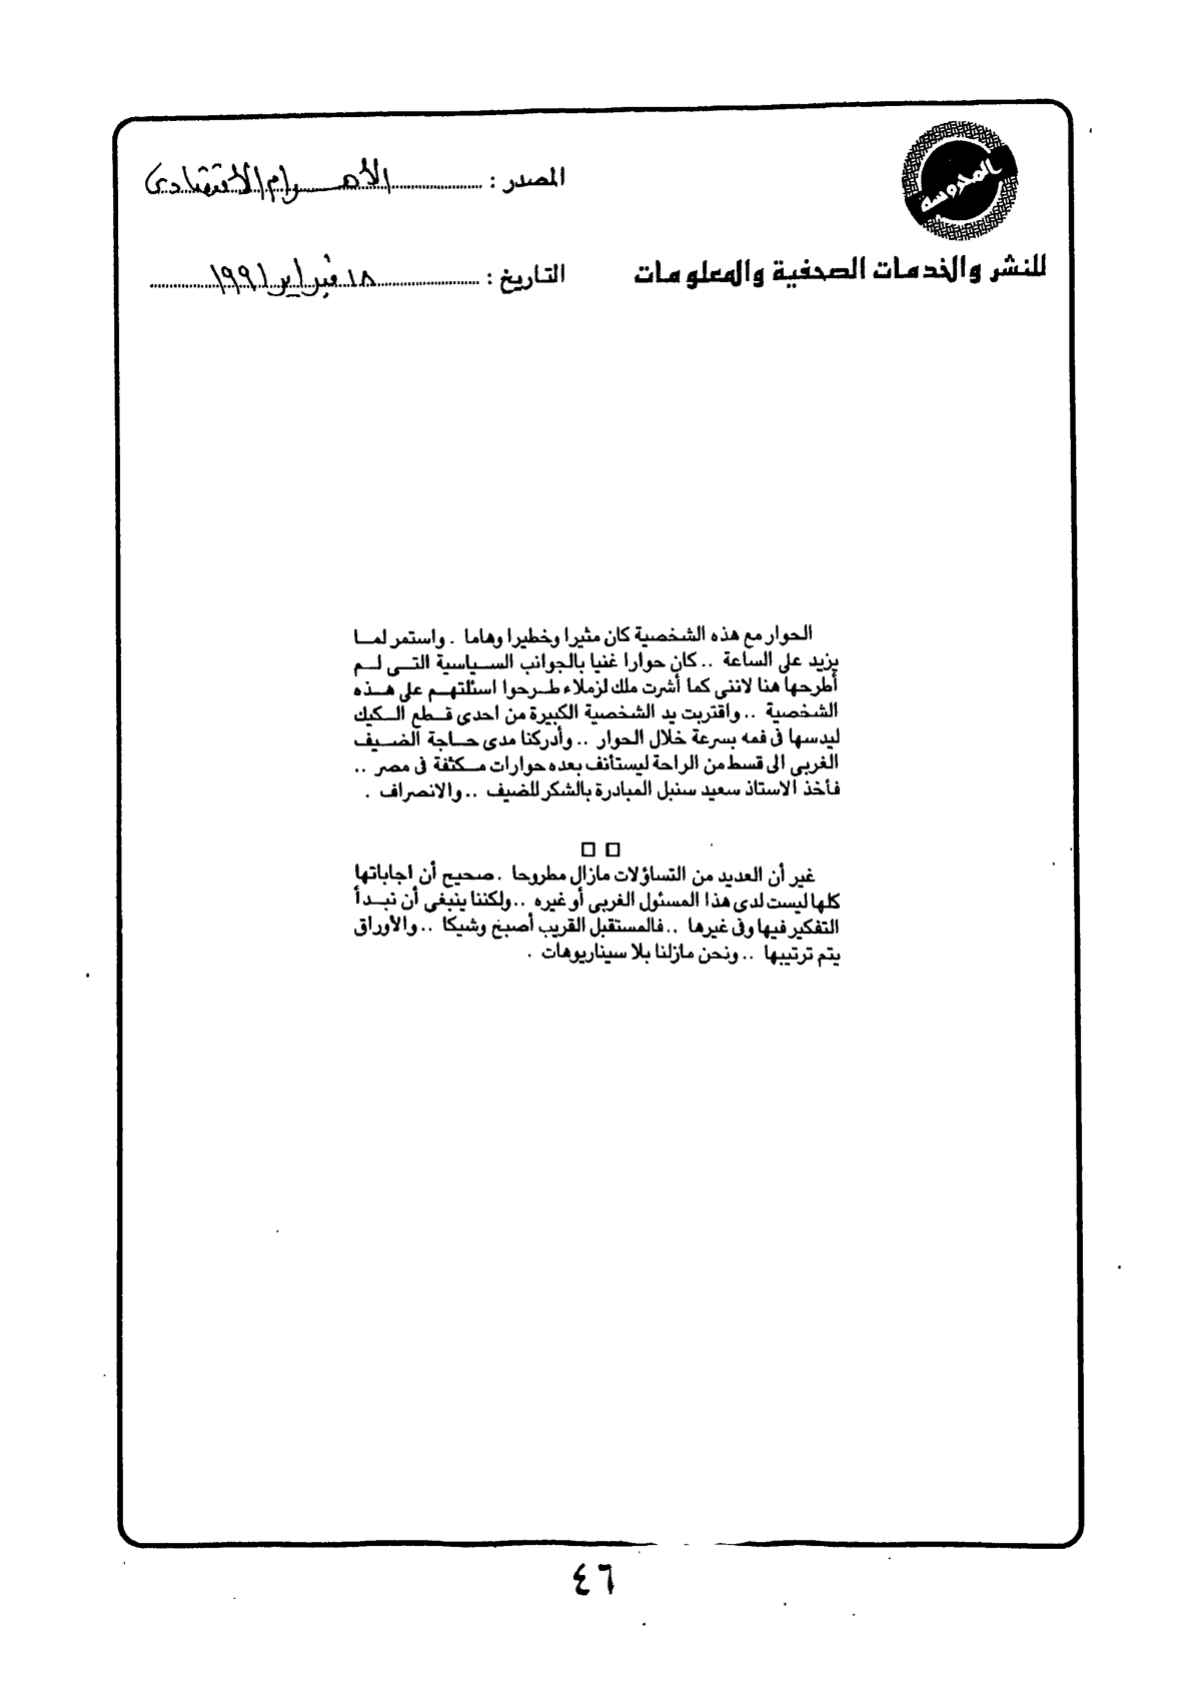 المحروسة
للنشر والخدمات الصحفية والمعلومات
المصدر : الأهرام الاقتصادى
التاريخ : ١٨ فبراير ١٩٩١
الحوار مع هذه الشخصية كان مثيرا وخطيرا وهاما . واستمر لما
يزيد على الساعة .. كان حوارا غنيا بالجوانب السياسية التى لم
أطرحها هنا لاننى كما أشرت ملك لزملاء طرحوا اسئلتهم على هذه
الشخصية .. واقتربت يد الشخصية الكبيرة من احدى قطع الكيك
ليدسها فى فمه بسرعة خلال الحوار .. وأدركنا مدى حاجة الضيف
الغربى الى قسط من الراحة ليستأنف بعده حوارات مكثفة فى مصر ..
فأخذ الاستاذ سعيد سنبل المبادرة بالشكر للضيف .. والانصراف .
غير أن العديد من التساؤلات مازال مطروحا . صحيح أن اجاباتها
كلها ليست لدى هذا المسئول الغربى أو غيره .. ولكننا ينبغى أن نبدأ
التفكير فيها وفى غيرها .. فالمستقبل القريب أصبخ وشيكا .. والأوراق
يتم ترتيبها .. ونحن مازلنا بلا سيناريوهات .
٤٦